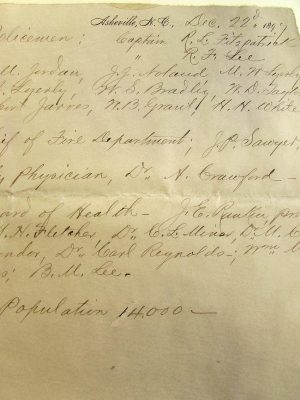 Asheville, N. C., Dec. 22ⁿᵈ 189
Policemen: Captain R. L. Fitzpatrick
" R. F. Lee
M. Jordan, J. J. Noland, M. W.
W. S. Bradly, W. D.
Jarves, N. B. Grant, H. H. White
ief of Fire Department; J. P. Sawyer,
Physician, Dr. A. Crawford —
oard of Health — J. E. Rankin, pre
H. Fletcher, Dr. C. L. Minor, Dr. M. C
Dr. Carl Reynolds -; Wm
B. M. Lee.
Population 14,000 —